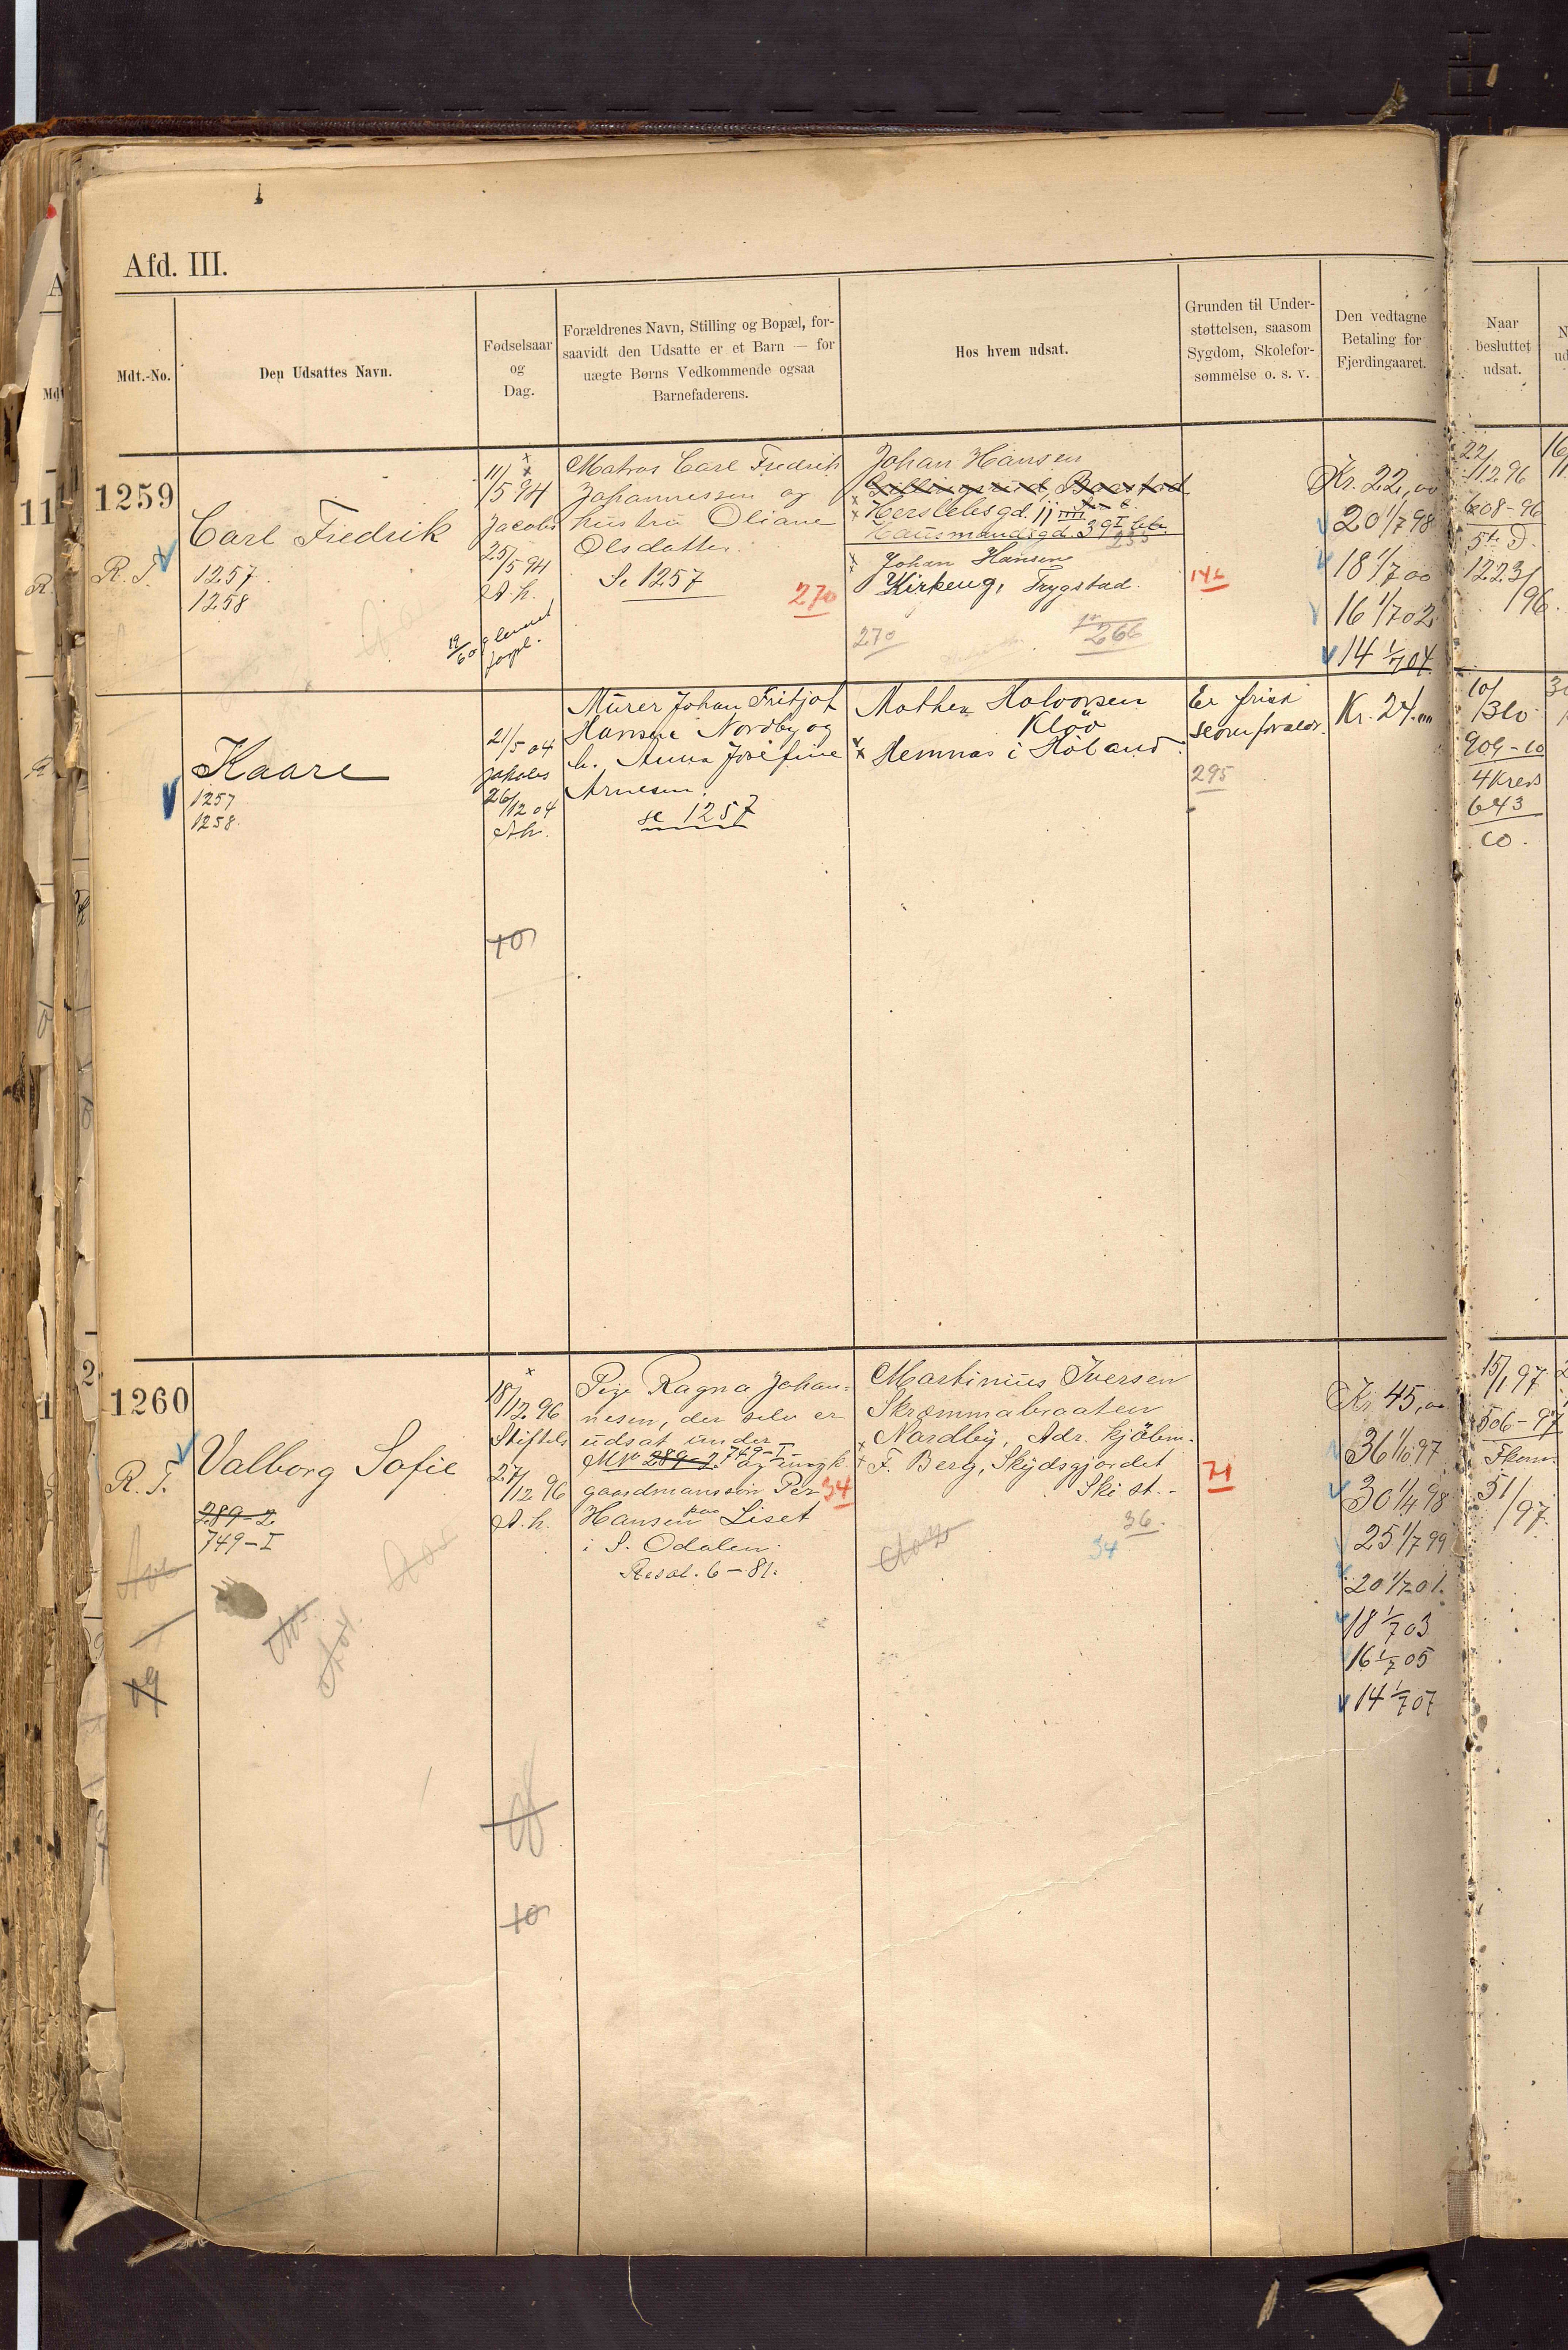 Afd. III.
Mdt.-No.
Den Udsattes Navn.
Fødselsaar
og
Dag.
Forældrenes Navn, Stilling og Bopæl, for-
saavidt den Udsatte er et Barn — for
uægte Børns Vedkommende ogsaa
Barnefaderens.
Hos hvem udsat.
Grunden til Under-
støttelsen, saasom
Sygdom, Skolefor-
sømmelse o. s. v.
Den vedtagne
Betaling for
Fjerdingaaret.
Naar
besluttet
udsat.
1259
R. T.
Carl Fredrik
1257
1258
11/5 94
Jacobs
25/5 94
A. h.
Matros Carl Fredrik
Johannessen og
hustru Oliane
Olsdatter.
Se 1257
270
Johan Hansen
Herslebsgd. 11
Hausmandsgd. 39 I
Johan Hansen
Kirkeng, Trygstad.
270
266
146
Kr. 22,00
20 1/7 98
18 1/7 00
16 1/7 02
14 1/7 04
22/11 96
608-96
5te D.
1223/96
Kaare
1257
1258
21/5 04
Jakobs
26/12 04
Ah.
Murer Johan Fritjof
Hansen Nordby og
h. Anna Josefine
Arnesen.
se 1257
Mathea Halvorsen
Kloö
Hemnæs i Höland
Er frisk
295
Kr. 24.00
10/3 10
909-10
4 Kreds
643
10.
1260
R. T.
Valborg Sofie
289-2
749-I
18/12 96
Stiftels
27/12 96
A. h.
Pige Ragna Johan-
nesen, der selv er
udsat under
MN 289-2 749-I og ungk.
gaardmandssön Per
34
Hansen paa Liset
i S. Odalen.
Resol. 6-81.
Martinius Iversen
Skræmmabraaten
Nordby, Adr. Kjölbm.
F. Berg, Skydsgjordet
Ski st.
36.
34
71
Kr 45,00
36 1/10 97
30 1/4 98
25 1/7 99
20 1/7 01.
18 1/7 03
16 1/7 05
14 1/7 07
15/1 97
506-97
Fkom.
51/97.